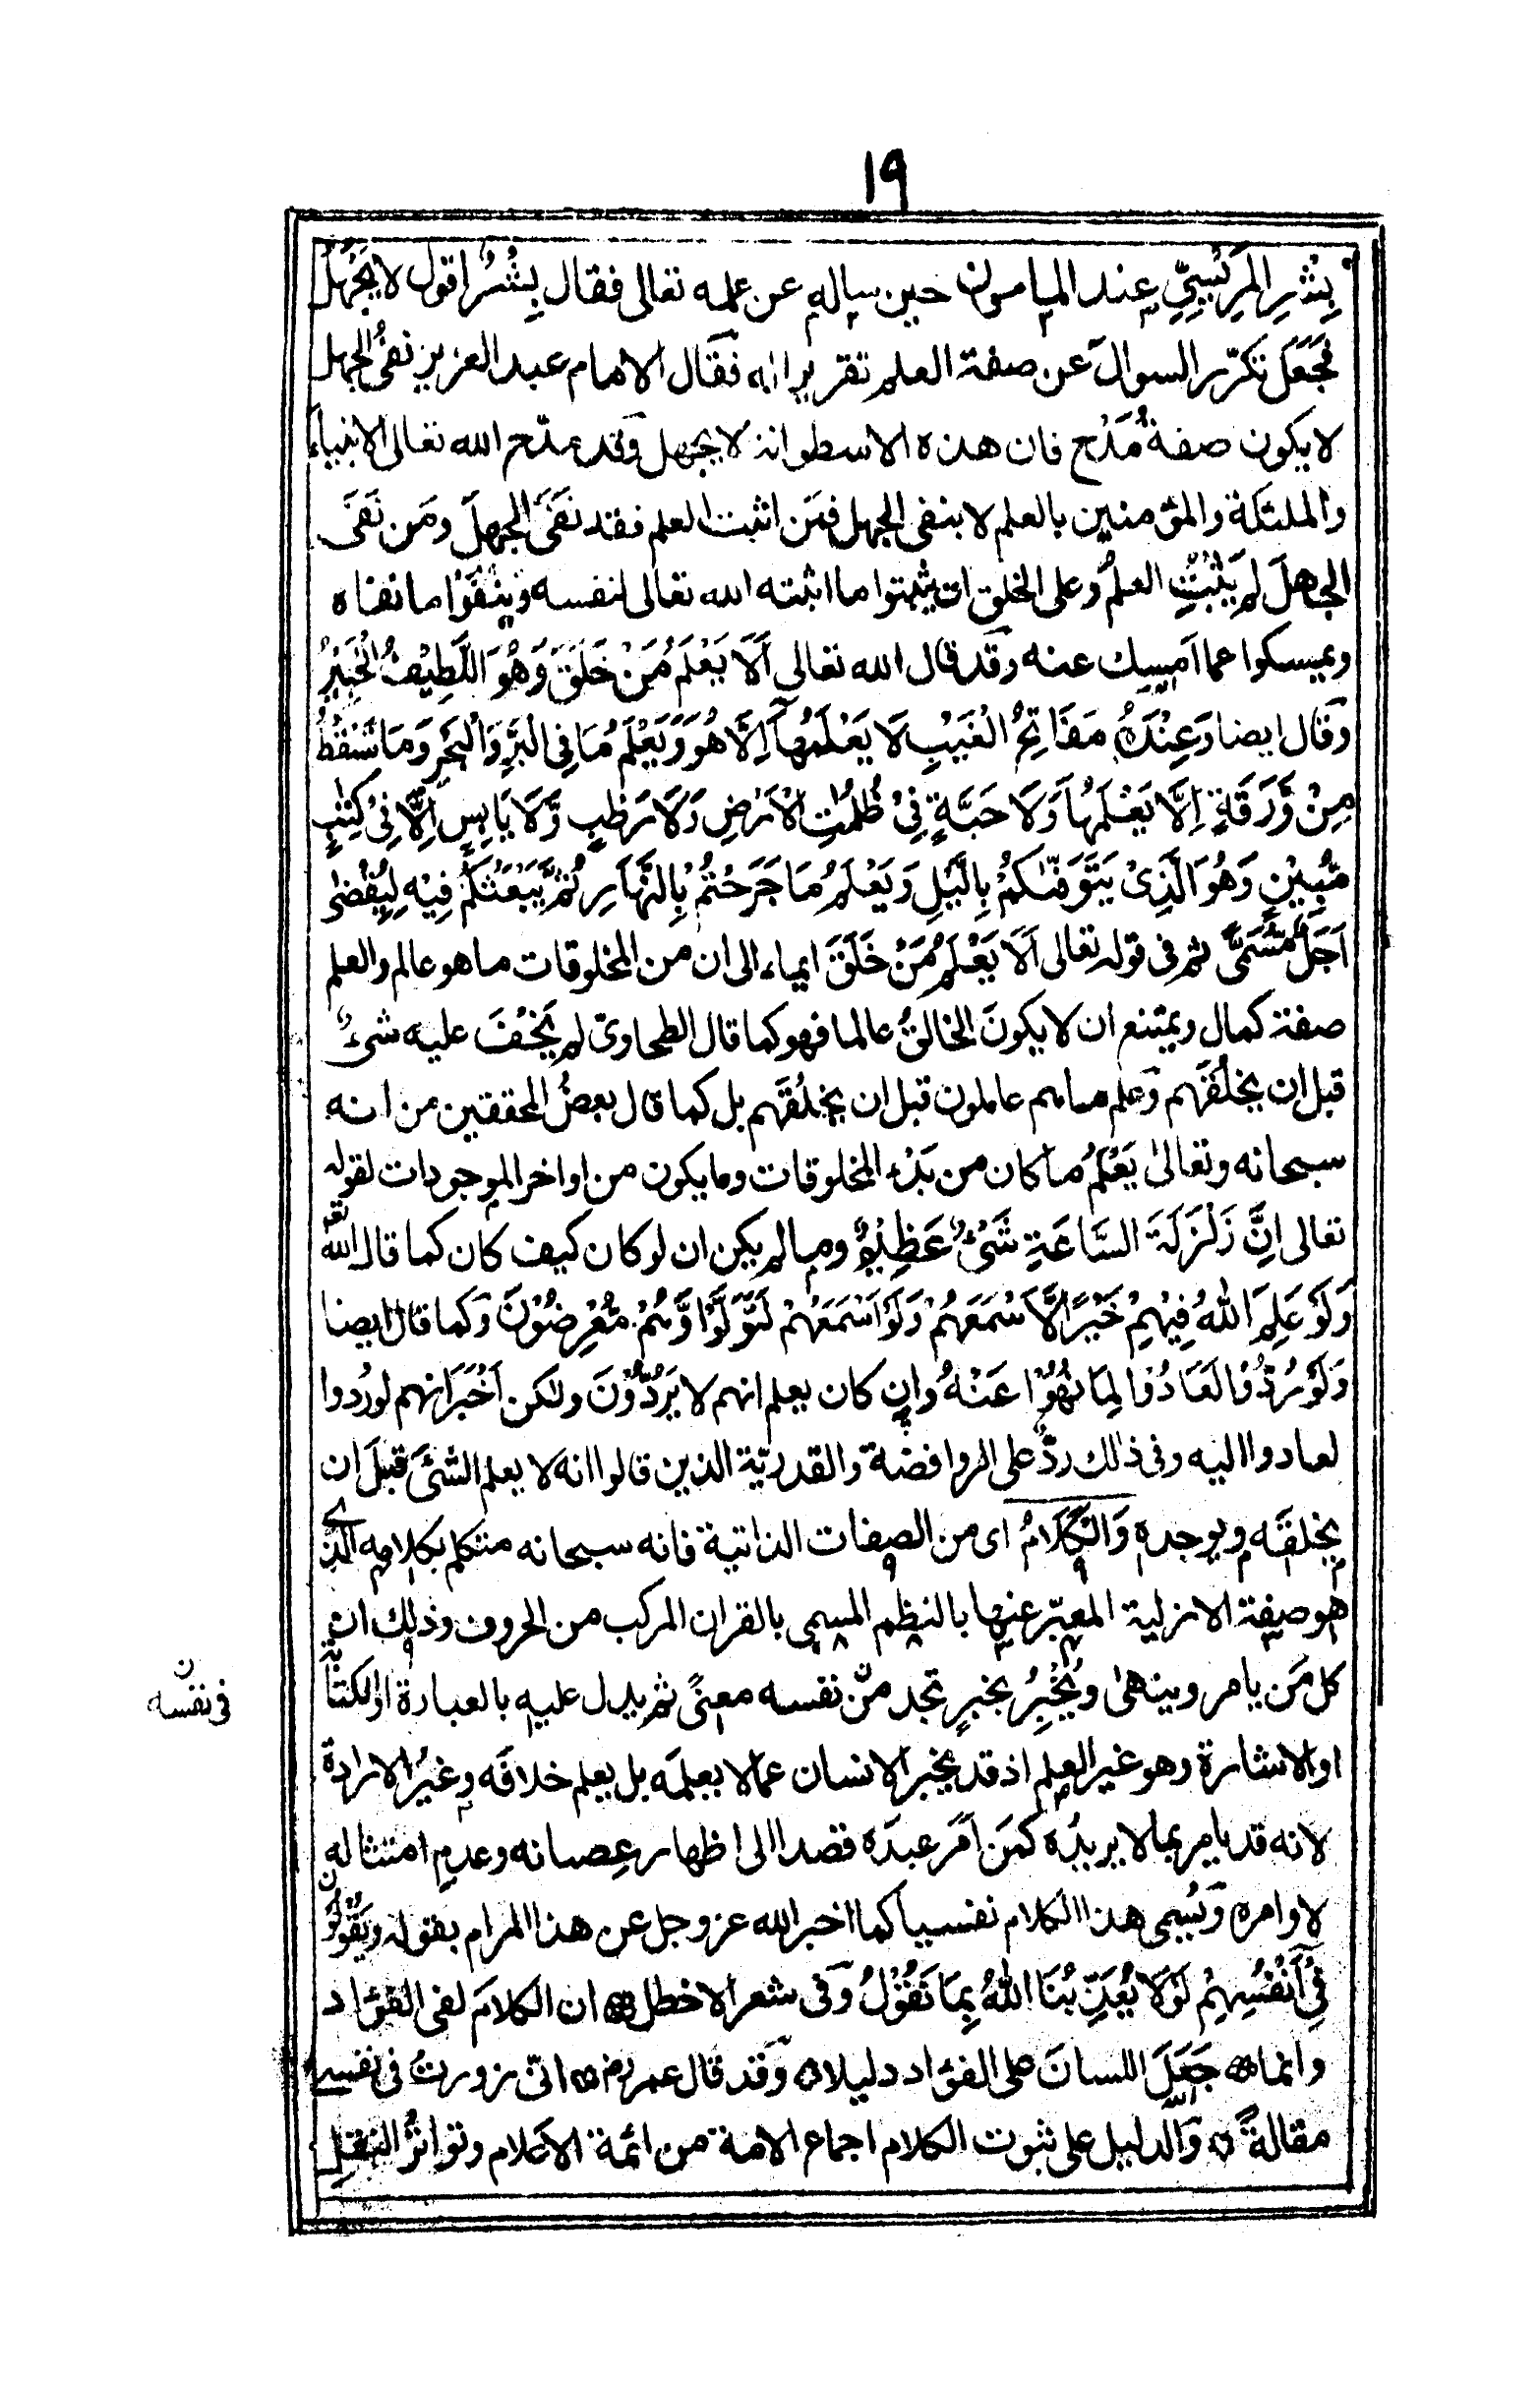 ١٩
بِشْرِ المَرِيْسِيِّ عند المامون حين ساله عن علمه تعالى فقال بِشْرٌ اقول لا يَجْهَلُ
فجَعَل يكرّر السوالَ عن صفة العلم تقريرا له فقال الامام عبد العزيز نفىُ الجهل
لا يكون صفةُ مَدْح فان هذه الاسطوانة لا يجهل وقد مدح الله تعالى الانبياء
والملئكة والمؤمنين بالعلم لا بنفى الجهل فمَن اثبت العلم فقد نَفَى الجهلَ ومَن نَفَى
الجهلَ لم يَثْبُتِ العلمُ وعلى الخلق ان يثبتوا ما اثبته الله تعالى لنفسه وينفُوْا ما نفاه
ويمسكوا عما اَمسك عنه وقد قال الله تعالى اَلَا يَعْلَمُ مَنْ خَلَقَ وَهُوَ اللَّطِيْفُ الْخَبِيْرُ
وقال ايضا وَعِنْدَهُ مَفَاتِحُ الْغَيْبِ لَا يَعْلَمُهَآ اِلَّا هُوَ وَيَعْلَمُ مَا فِى الْبَرِّ وَالْبَحْرِ وَمَا تَسْقُطُ
مِنْ وَّرَقَةٍ اِلَّا يَعْلَمُهَا وَلَا حَبَّةٍ فِىْ ظُلُمٰتِ الْاَرْضِ وَلَا رَطْبٍ وَّلَا يَابِسٍ اِلَّا فِىْ كِتٰبٍ
مُّبِيْنٍ وَهُوَ الَّذِىْ يَتَوَفّٰىكُمْ بِالَّيْلِ وَيَعْلَمُ مَا جَرَحْتُمْ بِالنَّهَارِ ثُمَّ يَبْعَثُكُمْ فِيْهِ لِيُقْضٰى
اَجَلٌ مُّسَمًّى ثم فى قوله تعالى اَلَا يَعْلَمُ مَنْ خَلَقَ ايماء الى ان من المخلوقات ما هو عالم والعلم
صفة كمال ويمتنع ان لا يكونَ الخالقُ عالما فهو كما قال الطحاوىّ لم يَخْفَ عليه شىءٌ
قبل ان يخلُقَهم وعلم ما هم عاملون قبل ان يخلُقَهم بل كما قال بعضُ المحققين من انه
سبحانه وتعالىٰ يَعْلَمُ ما كان من بَدْء المخلوقات وما يكون من اواخر الموجودات لقوله
تعالى اِنَّ زَلْزَلَةَ السَّاعَةِ شَىْءٌ عَظِيْمٌ وما لم يكن ان لو كان كيف كان كما قال الله تع
وَلَوْ عَلِمَ اللّٰهُ فِيْهِمْ خَيْرًا لَّاَسْمَعَهُمْ وَلَوْ اَسْمَعَهُمْ لَتَوَلَّوْا وَّهُمْ مُّعْرِضُوْنَ وكما قال ايضا
وَلَوْ رُدُّوْا لَعَادُوْا لِمَا نُهُوْا عَنْهُ وان كان يعلم انهم لا يُرَدُّوْنَ ولكن اَخْبَرَ انهم لو رُدوا
لعادوا اليه وفى ذلك ردٌّ على الروافضة والقدريّة الذين قالوا انه لا يعلم الشئَ قبلَ ان
يخلقَه ويوجده وَالْكَلَامُ اى من الصفات الذاتية فانه سبحانه متكلم بكلامه الذى
هو صفة الازلية المعبّر عنها بالنظم المسمى بالقران المركب من الحروف وذلك ان
كل مَن يامر وينهىٰ ويُخْبِرُ بخبرٍ تجد من نفسه معنًى ثم يدل عليه بالعبارة او الكتابة
فى نفسه ن
او الاشارة وهو غير العلم اذ قد يخبر الانسان عما لا يعلمه بل يعلم خلافَه وغيرُ الارادة
لانه قد يامر بما لا يريدُه كمَن اَمَر عبدَه قصدا الى اظهار عِصيانه وعدم امتثاله
لاوامره ويُسمى هذا الكلام نفسيا كما اخبر الله عز وجل عن هذا المرام بقوله وَيَقُوْلُوْنَ
فِىْ اَنْفُسِهِمْ لَوْلَا يُعَذِّبُنَا اللّٰهُ بِمَا نَقُوْلُ وفى شعر الاخطل ان الكلامَ لفى الفؤاد
وانما جَعَلَ اللسانَ على الفؤاد دليلا وقد قال عمر رض انّى زورتُ فى نفسى
مقالةً والدليل على ثبوت الكلام اجماع الامة من ائمة الاعلام وتواترُ النقلِ